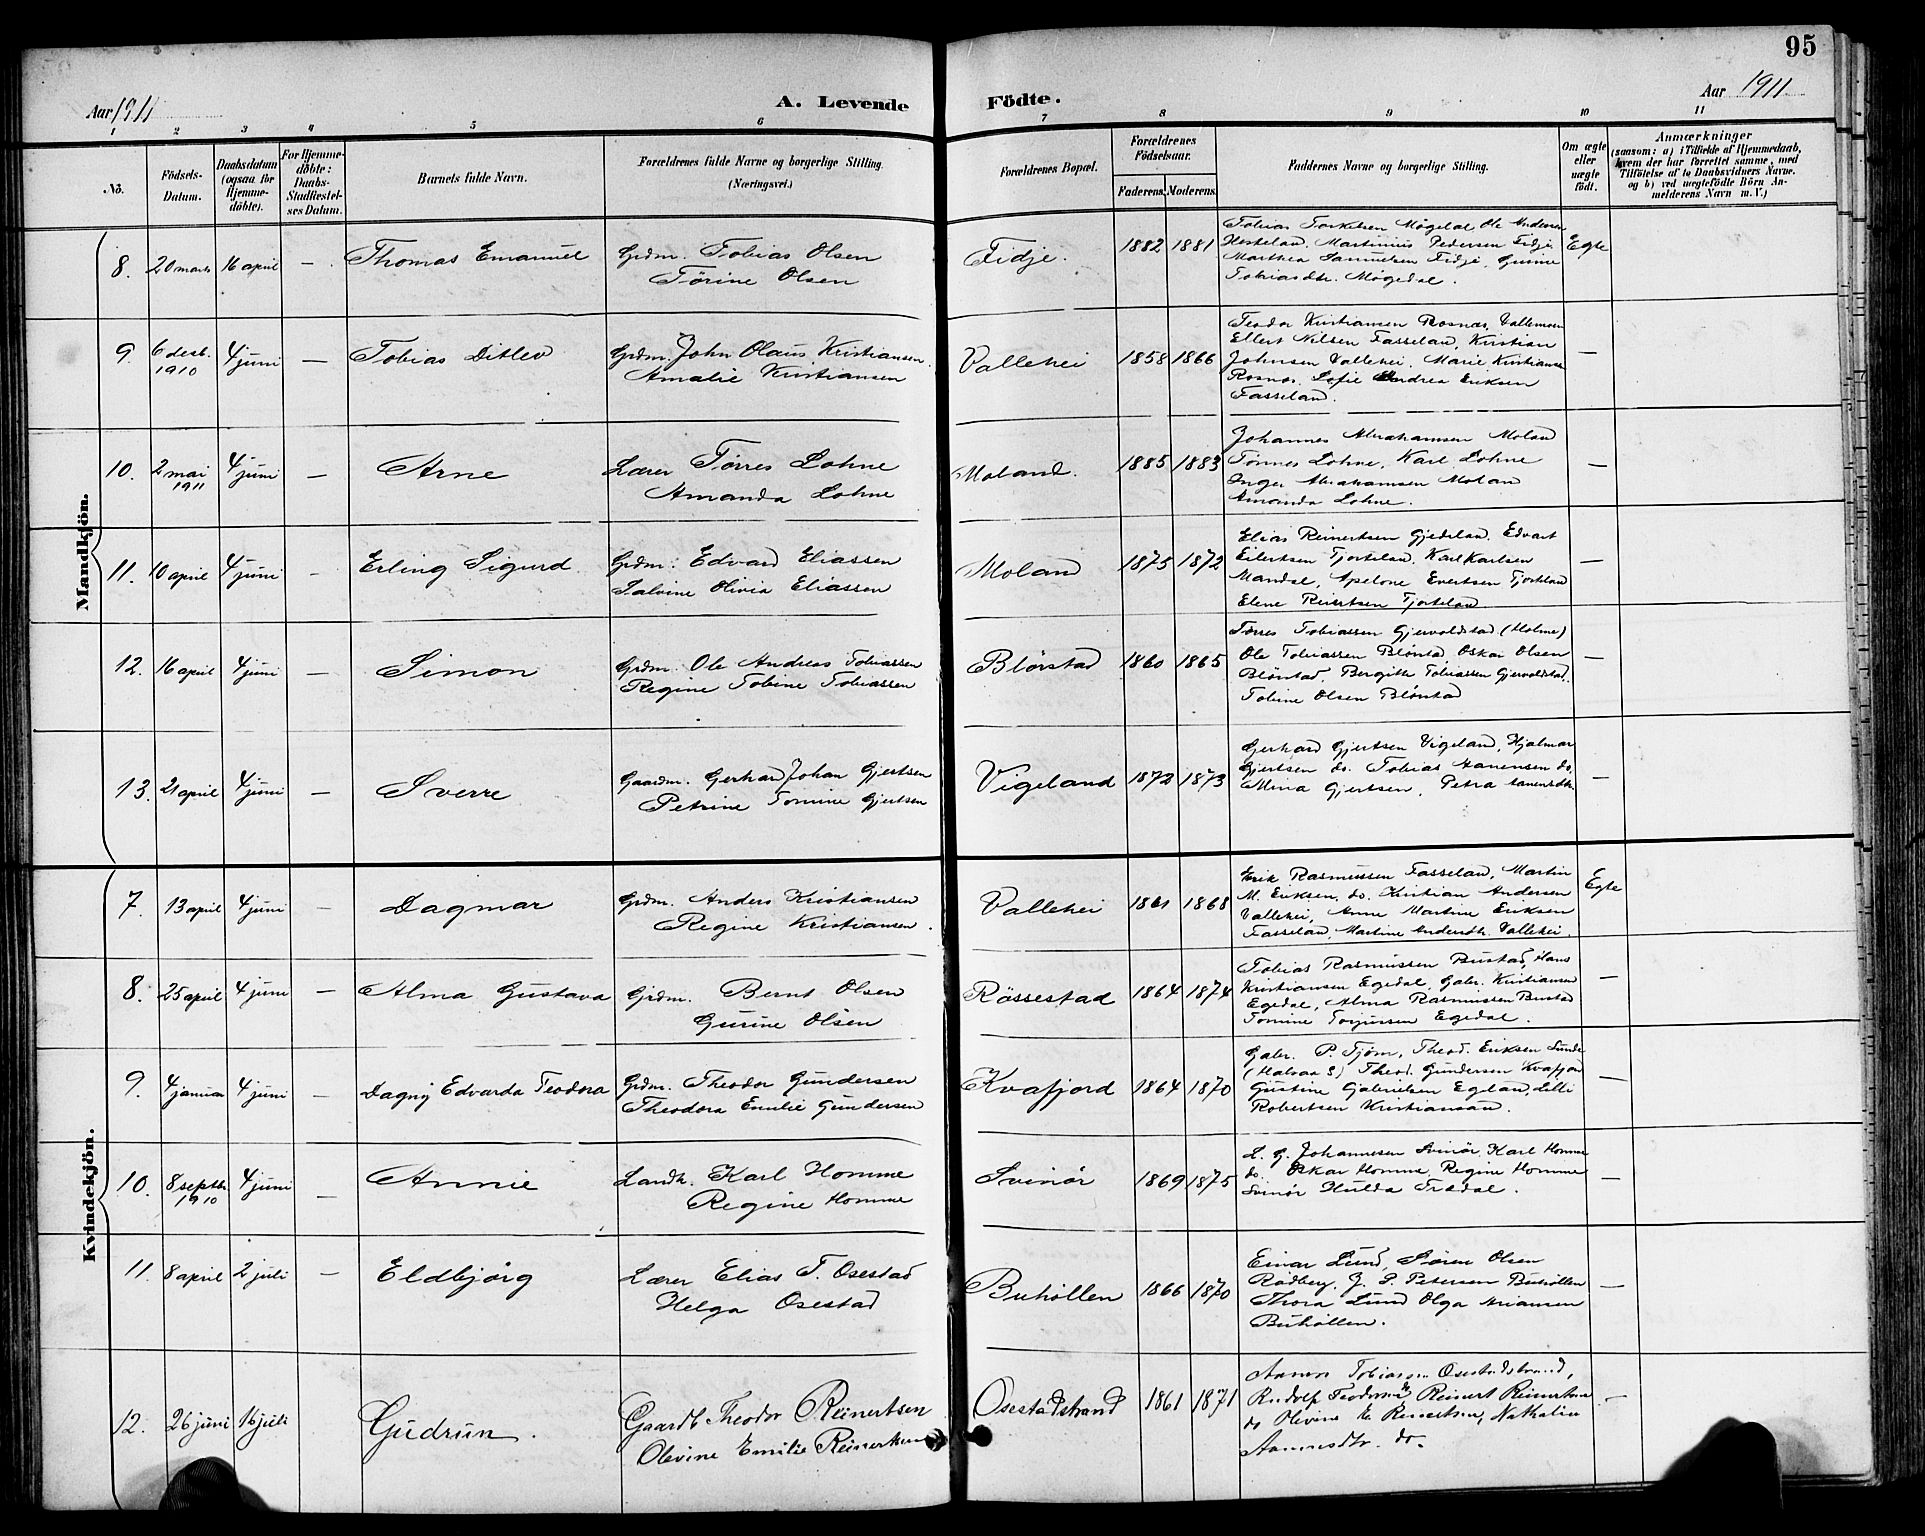 95
Aar 1911
A. Levende Födte.
Aar 1911
1 2 3 4 5 6 7 8 9 10 11
No.
Födsels-Datum.
Daabsdatum (ogsaa for Hjemmedöbte).
For Hjemmedöbte: Daabs-Stadfæstelses Datum.
Barnets fulde Navn.
Forældrenes fulde Navne og borgerlige Stilling. (Næringsvei.)
Forældrenes Bopæl.
Forældrenes Födselsaar.
Faderens. Moderens.
Faddernes Navne og borgerlige Stilling.
Om ægte eller uægte födt.
Anmærkninger
(saasom: a) i Tilfælde af Hjemmedaab, hvem der har forrettet samme, med Tilföielse af to Daabsvidners Navne. og b) ved uægtefödte Börn Anmelderens Navn m. V.)
Mandkjön.
8. 20 marts 16 april — Thomas Emanuel
Grdm. Tobias Olsen
Tørine Olsen
Fidje. 1882 1881
Tobias Torkelsen Møgedal, Ole Andersen
Hesteland, Martinius Pedersen Fidje
Marthea Samuelsen Fidje, Gurine
Tobiasdtr. Møgedal.
Egte
9. 6 desb. 1910 4 juni — Tobias Ditlev
Grdm. John Olaus Kristiansen.
Amalie Kristiansen
Vallehei 1858 1866
Teodor Kristiansen Rosnæs, Vallemoen
Ellert Nilsen Fasseland, Kristian
Johnsen Vallehei, Marie Kristiansen
Rosnæs, Sofie Andrea Eriksen
Fasseland.
—
10. 2 mai 1911 4 juni — Arne
Lærer Tørres Lohne
Amanda Lohne
Moland. 1885 1883
Johannes Abrahamsen Moland
Tønnes Lohne, Karl Lohne
Inger Abrahamsen Moland
Amanda Lohne.
—
11. 10 april 4 juni — Erling Sigurd
Grdm. Edvard Eliassen
Salvine Olivia Eliassen
Moland 1875 1872
Elias Reinertsen Gjedeland, Edvart
Eilertsen Tjorteland, Karl Karlsen
Mandal, Apelone Evertsen Tjorteland
Elene Reiertsen Tjorteland.
—
12. 16 april 4 juni — Simon
Grdm. Ole Andreas Tobiassen
Regine Tobine Tobiassen
Blørstad 1860 1865
Tørres Tobiassen Gjervoldstad (Holme)
Ole Tobiassen Blørstad, Oskar Olsen
Blørstad, Bergitte Tobiassen Gjervoldstad,
Tobine Olsen Blørstad
—
13. 21 april 4 juni — Sverre
Gaardm. Gerhard Johan Gjertsen
Petrine Tomine Gjertsen
Vigeland 1872 1873
Gerhard Gjertsen Vigeland, Hjalmar
Gjertsen do. Tobias Hanensen do,
Mina Gjertsen, Petra
—
Kvindekjön.
7. 13 april 4 juni — Dagmar
Grdm. Anders Kristiansen
Regine Kristiansen.
Vallehei 1861 1868
Erik Rasmussen Fasseland, Martin
M. Eriksen, do. Kristian Andersen
Vallehei, Anne Martine Eriksen
Fasseland, Martine Andersdtr. Vallehei.
Egte
8. 25 april 4 juni — Alma Gustava
Grdm. Bernt Olsen
Gurine Olsen
Røssestad 1864 1874
Tobias Rasmussen Bustad, Hans
Kristiansen Egedal, Gabr. Kristiansen
Egedal, Alma Rasmussen Bustad
Tomine Torjussen Egedal.
—
9. 4 januar 4 juni — Dagny Edvarda Teodora
Grdm. Theodor Gundersen
Theodora Emilie Gundersen
Kvafjord 1864 1870
Gabr. P. Tjøm, Theod. Eriksen Sunde
(Halsaa S) Theod. Gundersen Kvafjor
Gustine Gabrielsen Egeland, Lilli
Robertsen Kristiansand.
—
10. 8 septb. 1910 4 juni — Annie
Landh. Karl Homme
Regine Homme
Svinør 1869 1875
L. G. Johannesen Svinør, Karl Homme
do. Oskar Homme, Regine Homme
Svinør Hulda Tredal.
—
11. 8 april 2 juli — Eldbjørg
Lærer Elias T. Osestad
Helga Osestad
Buhøllen 1866 1870
Einar Lund, Søren Olsen
Rødberg, J. P. Petersen Buhøllen
Thora Lund Olga Ariansen
Buhøllen.
—
12. 26 juni 16 juli Gudrun.
Gaardb. Theodor Reinertsen
Olevine Emilie Reinertsen
Osestadstrand 1861 1871
Aanen Tobiassen Osestadstrand,
Rudolf Teodorsen do Reinert Reinertsen
do Olevine E. Reinertsen, Nathalia
Aanensdtr. do.
—